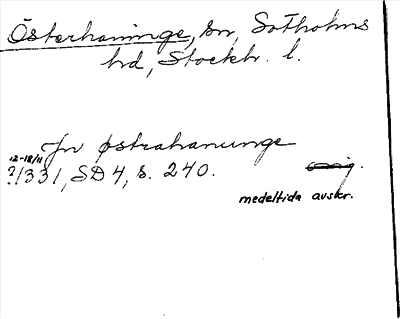 Österhaninge, sn, Sotholms
hd, Stockh. l.
In østrahanunge
12-18/11
?/331, SD 4, s. 240. orig.
medeltida avskr.